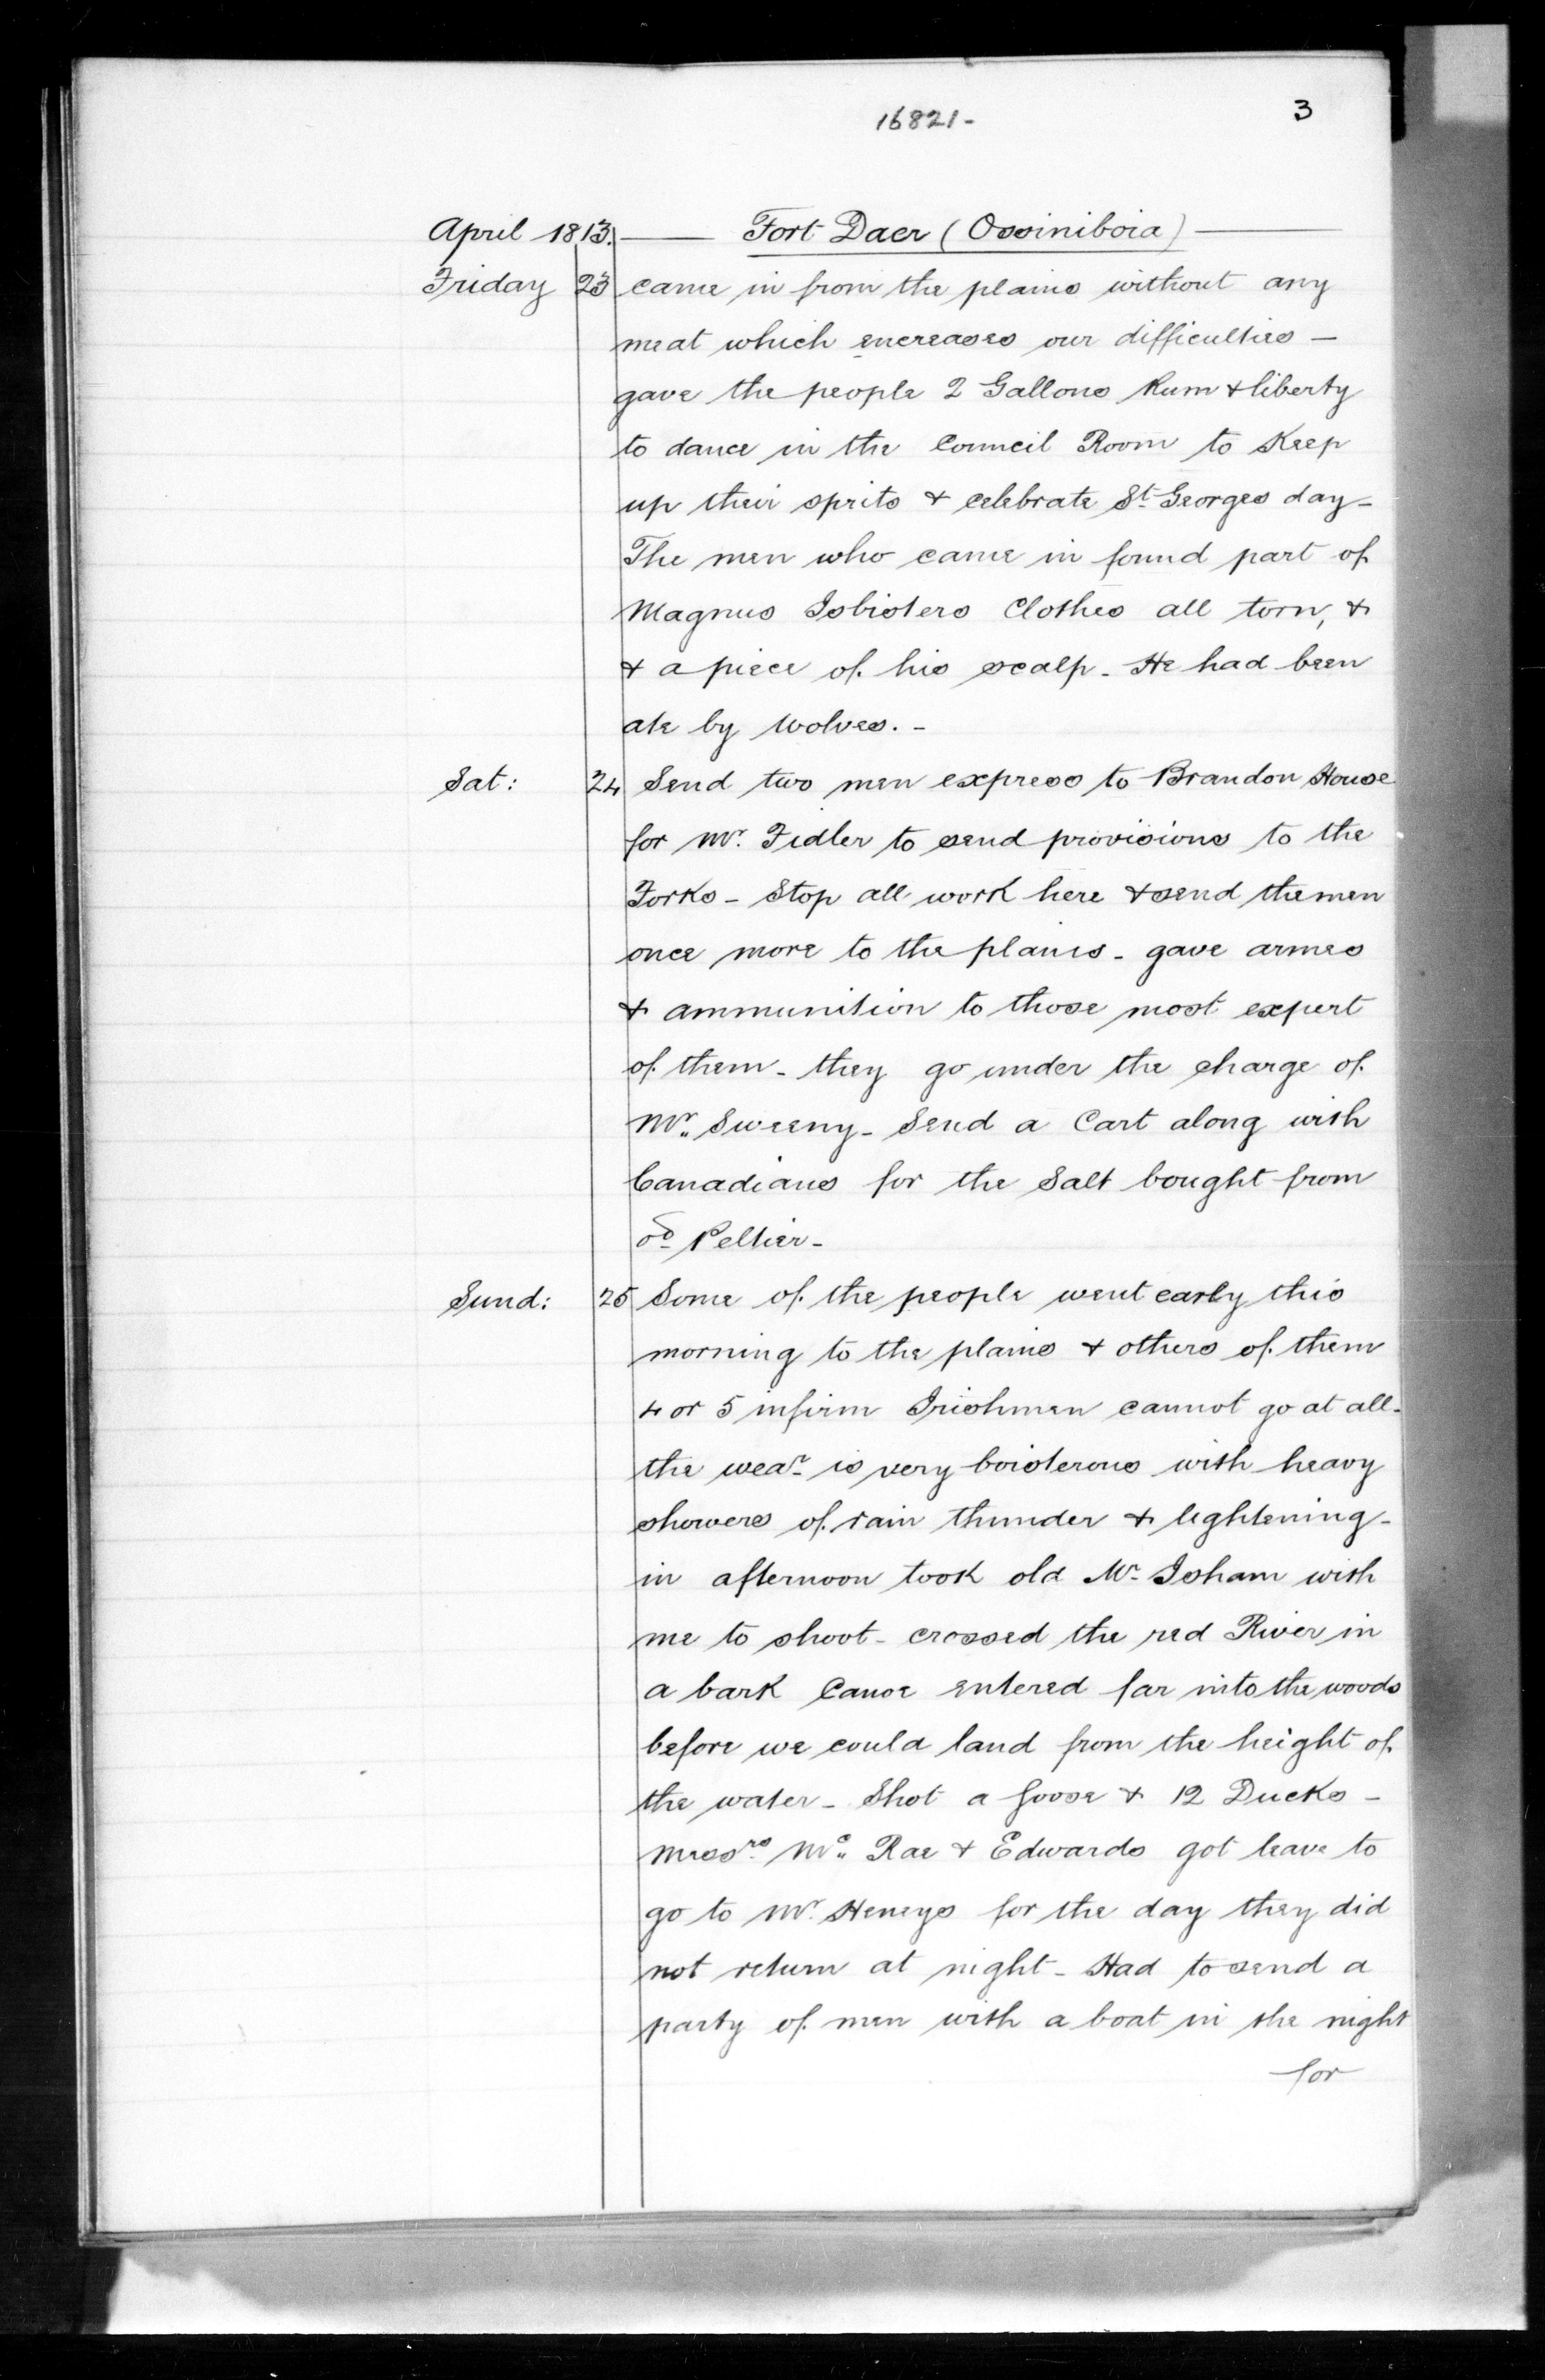 16821-
3
April 1813. Fort Daer (Ossiniboia)
Friday 23 came in from the plains without any
meat which encreases our difficulties —
gave the people 2 Gallons Rum & liberty
to dance in the Council Room to Keep
up their sprits & celebrate St Georges day-
The men who came in found part of
Magnus Isbisters Clothes all torn, &
& a piece of his scalp. He had been
ate by wolves. -
Sat: 24 Send two men express to Brandon House
for Mr. Fidler to send provisions to the
Forks - Stop all work here & send the men
once more to the plains - gave armes
& ammunition to those most expert
of them - they go under the charge of
Mr. Sweeny - Send a Cart along with
Canadians for the Salt bought from
sd Peltier -
Sund: 25 Some of the people went early this
morning to the plains & others of them
4 or 5 infirm Irishmen cannot go at all-
the wear is very boisterous with heavy
showers of rain thunder & lightening -
in afternoon took old Mr Isham with
me to shoot - crossed the red River in
a bark Canoe entered far into the woods
before we could land from the height of
the water - Shot a goose & 12 Ducks -
Messrs Mc Rae & Edwards got leave to
go to Mr. Heneys for the day they did
not return at night - Had to send a
party of men with a boat in the night
for